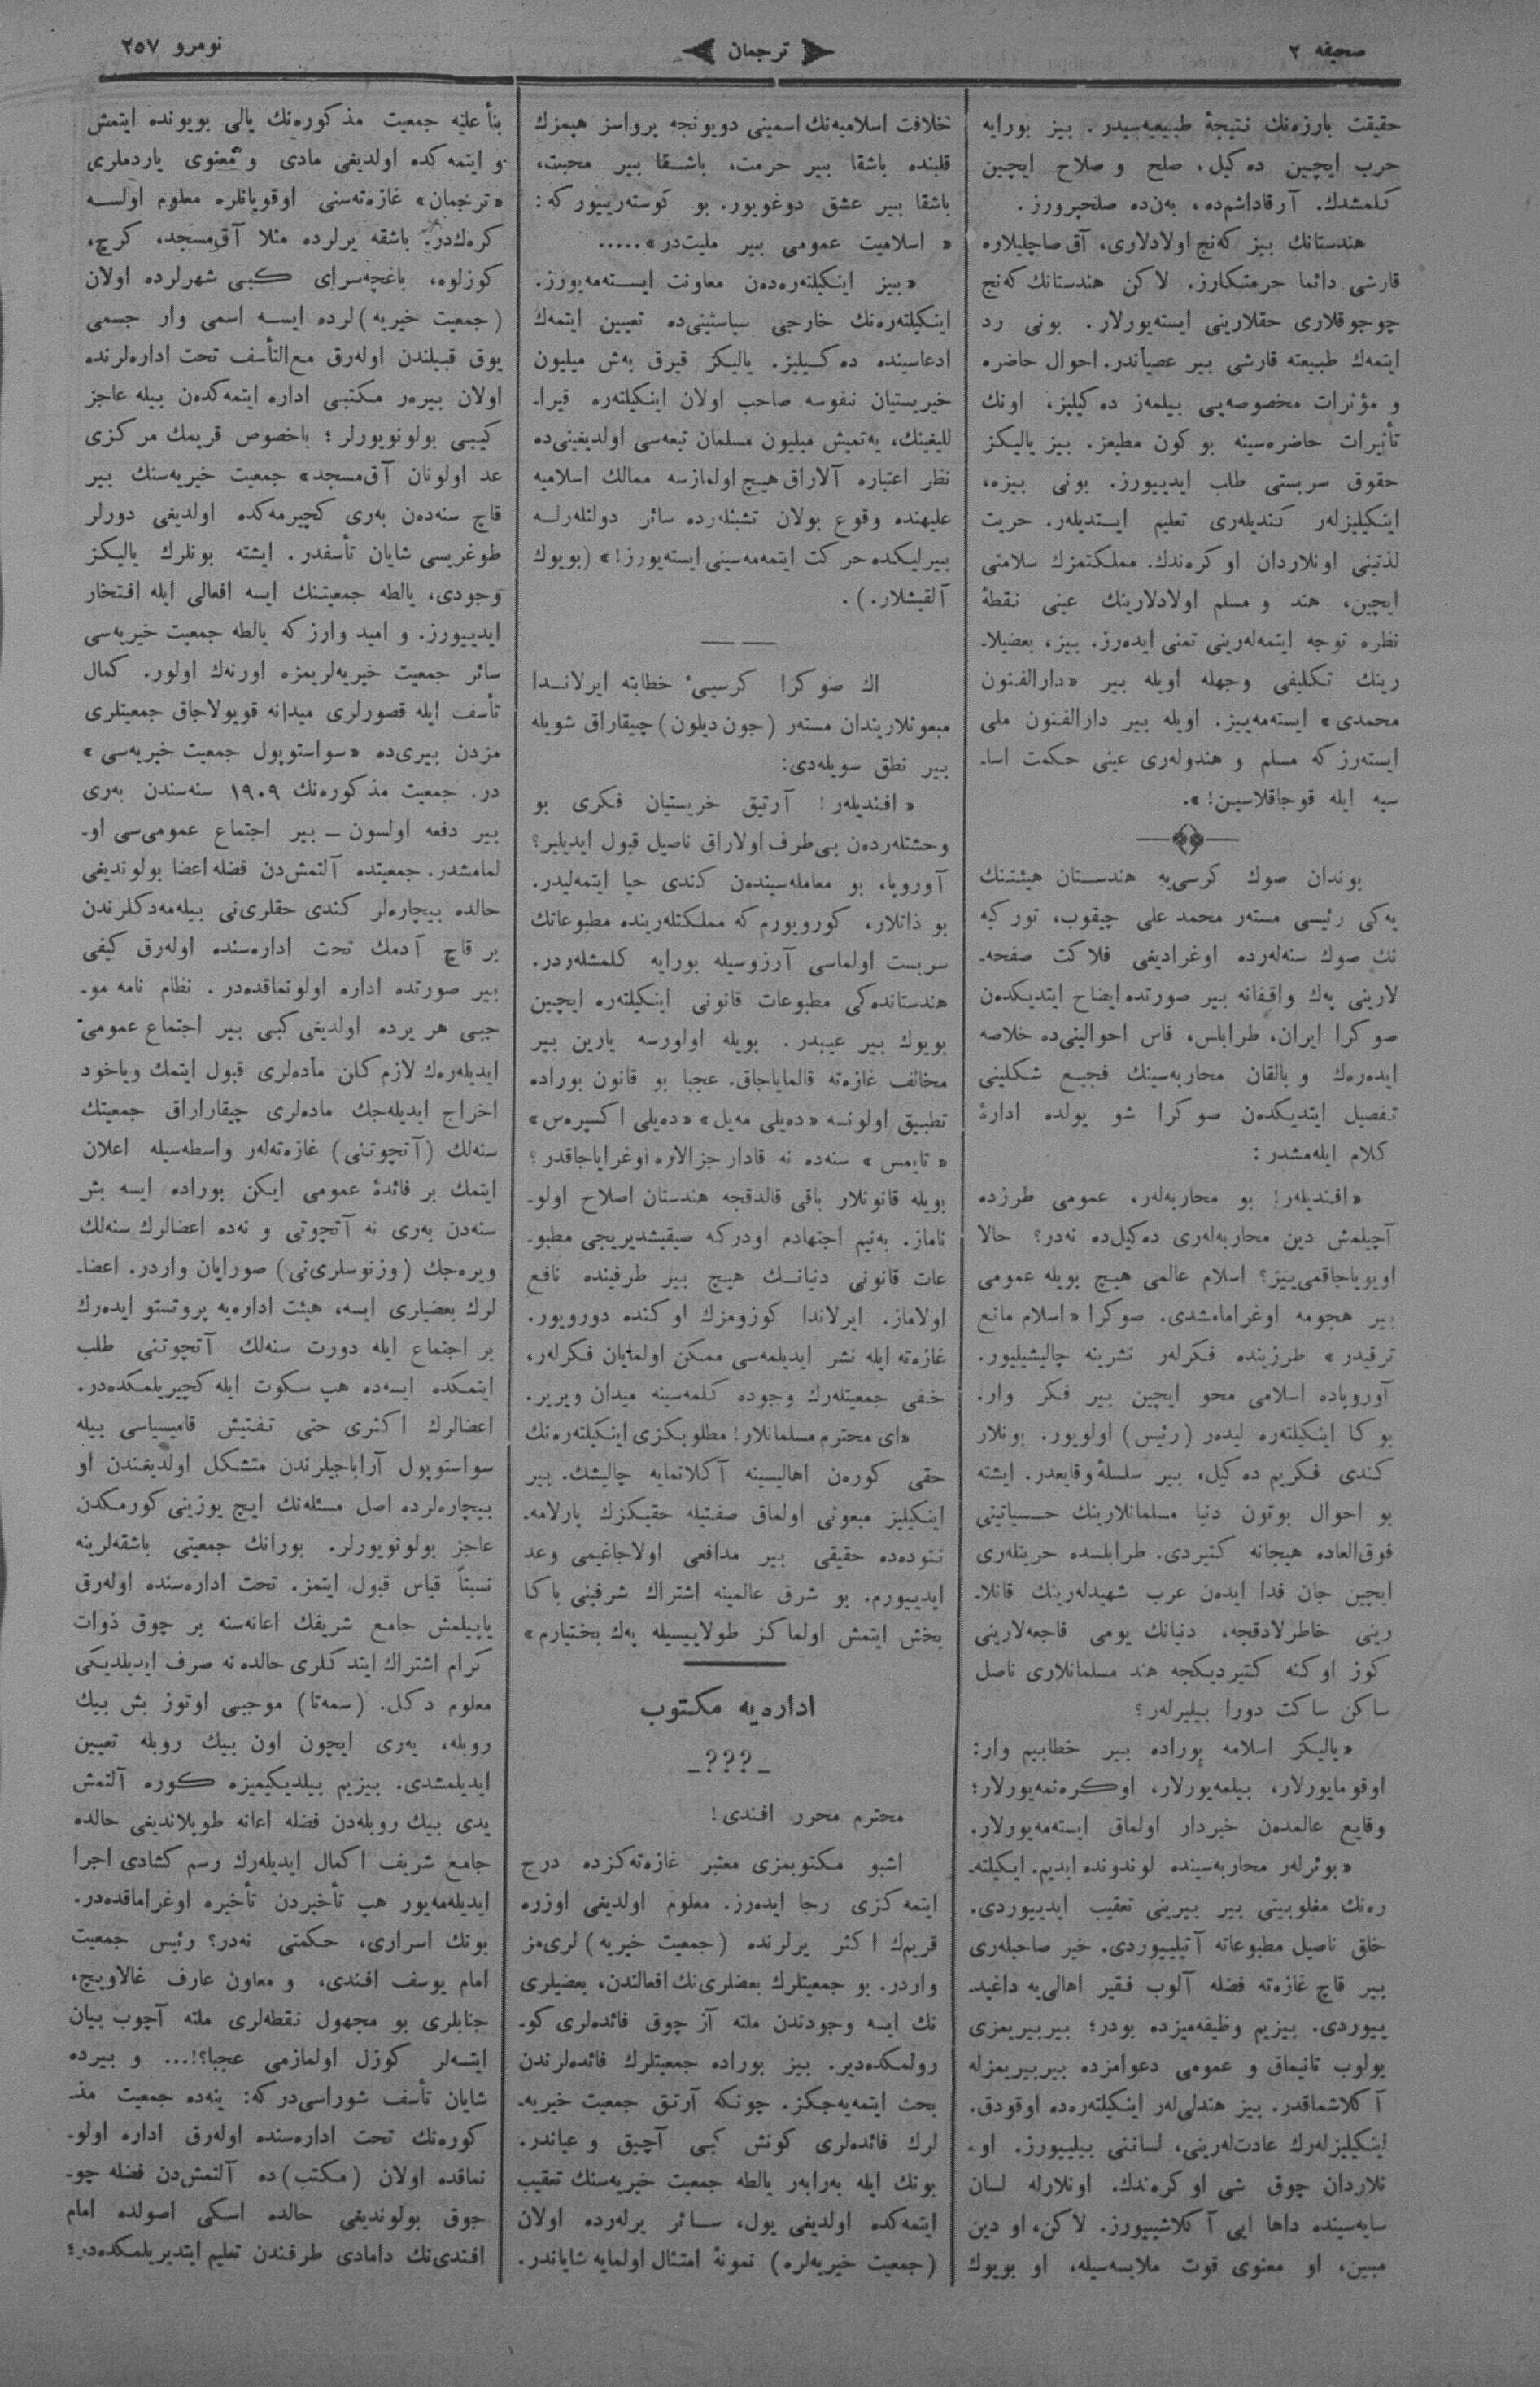 صحیفه ٢
ترجمان
نومرو ٢٥٧
حقیقت بارزه‌نك نتیجهٔ طبیعیه‌سیدر. بیز بورایه
حرب ایچین ده‌کیل، صلح و صلاح ایچین
کلمشدك. آرقاداشم‌ده، بەن‌ده صلحپرورز.
هندستانك بیز کەنج اولادلاری، آق صاچلیلاره
قارشی دائما حرمتکارز. لاکن هندستانك کەنج
چوجوقلاری حقلارینی ایستەیورلار. بونی رد
ایتمەك طبیعته قارشی بیر عصیاندر. احوال حاضره
و مؤثرات مخصوصه‌یی بیلمەز ده‌کیلیز، اونك
تأثیرات حاضره‌سینه بو کون مطیعز. بیز یالیکز
حقوق سربستی طلب ایدییورز. بونی بیزه،
اینکیلیزلەر کندیلەری تعلیم ایستدیلەر. حریت
لذتینی اونلاردان اوکرەندك. مملکتمزك سلامتی
ایچین، هند و مسلم اولادلارینك عینی نقطهٔ
نظره توجه ایتمەلەرینی تمنی ایدەرز. بیز، بعضیلا-
رینك تکلیفی وجهله اویله بیر «دارالفنون
محمدی» ایستەمەییز. اویله بیر دارالفنون ملی
ایستەرز که مسلم و هندولەری عینی حکمت اسا-
سیه ایله قوجاقلاسین!».
بوندان صوك کرسی‌یه هندستان هیئتنك
یەکی رئیسی مستەر محمد علی چیقوب، تورکیه
نك صوك سنەلەرده اوغرادیغی فلاکت صفحه-
لارینی پەك واقفانه بیر صورتده ایضاح ایتدیکدەن
صوکرا ایران، طرابلس، فاس احوالینی‌ده خلاصه
ایدەرەك و بالقان محاربه‌سینك فجیع شکلینی
تفصیل ایتدیکدەن صوکرا شو یولده ادارهٔ
کلام ایلەمشدر:
«افندیلەر! بو محاربەلەر، عمومی طرزده
آچیلمش دین محاربەلەری ده‌کیل‌ده نەدر؟ حالا
اویویاجاقمی‌ییز؟ اسلام عالمی هیچ بویله عمومی
بیر هجومه اوغرامامشدی. صوکرا «اسلام مانع
ترقیدر» طرزینده فکرلەر نشرینه چالیشیلیور.
آوروپاده اسلامی محو ایچین بیر فکر وار.
بوکا اینکیلتەره لیدەر (رئیس) اولویور. بونلار
کندی فکریم ده‌کیل، بیر سلسلهٔ وقایعدر. ایشته
بو احوال بوتون دنیا مسلمانلارینك حسیاتینی
فوق‌العاده هیجانه کتیردی. طرابلسده حریتلەری
ایچین جان فدا ایدەن عرب شهیدلەرینك قانلا-
رینی خاطرلادقجه، دنیانك یومی فاجعەلارینی
کوز اوکنه کتیردیکجه هند مسلمانلاری ناصل
ساکن ساکت دورا بیلیرلەر؟
«یالیکز اسلامه بوراده بیر خطابیم وار:
اوقومایورلار، بیلمەیورلار، اوکرەنمەیورلار؛
وقایع عالمدەن خبردار اولماق ایستەمەیورلار.
«بوئرلەر محاربه‌سینده لوندونده ایدیم. ایکیلته-
رەنك مغلوبیتی بیر بیرینی تعقیب ایدییوردی.
خلق ناصیل مطبوعاته آتیلییوردی. خیر صاحبلەری
بیر قاچ غازەته فضله آلوب فقیر اهالی‌یه داغید-
ییوردی. بیزیم وظیفەمیزده بودر؛ بیربیریمزی
بولوب تانیماق و عمومی دعوامزده بیربیریمزله
آکلاشماقدر. بیز هندلی‌لەر اینکیلتەرەده اوقودق.
اینکیلیزلەرك عادت‌لەرینی، لسانئی بیلییورز. او-
نلاردان چوق شی اوکرەندك. اونلارله لسان
سایه‌سینده داها ایی آکلاشییورز. لاکن، او دین
مبین، او معنوی قوت ملابسه‌سیله، او بویوك
خلافت اسلامیه‌نك اسمینی دویونجه پرواسز هپمزك
قلبنده باشقا بیر حرمت، باشقا بیر محبت،
باشقا بیر عشق دوغویور. بو کوستەرییور که:
«اسلامیت عمومی بیر ملیت‌در».....
«بیز اینکیلتەرەدەن معاونت ایستەمەیورز.
اینکیلتەرەنك خارجی سیاستینی‌ده تعیین ایتمەك
ادعاسینده ده‌کیلیز. یالیکز قیرق بەش میلیون
خیریستیان نفوسه صاحب اولان اینکیلتەره قیرا-
للیغینك، یەتمیش میلیون مسلمان تبعه‌سی اولدیغینی‌ده
نظر اعتباره آلاراق هیچ اولمازسه ممالك اسلامیه
علیهنده وقوع بولان تشبثلەرده سائر دولتلەرله
بیرلیکده حرکت ایتمەمەسینی ایستەیورز!» (بویوك
آلقیشلار.).
اك صوکرا کرسیءِ خطابته ایرلاندا
مبعوثلاریندان مستەر (جون دیلون) چیقاراق شویله
بیر نطق سویلەدی:
«افندیلەر! آرتیق خریستیان فکری بو
وحشتلەردەن بی‌طرف اولاراق ناصیل قبول ایدیلیر؟
آوروپا، بو معامله‌سیندەن کندی حیا ایتمەلیدر.
بو ذاتلار، کورویورم که مملکتلەرینده مطبوعاتك
سربست اولماسی آرزوسیله بورایه کلمشلەردر.
هندستانده‌کی مطبوعات قانونی اینکیلتەره ایچین
بویوك بیر عیبدر. بویله اولورسه یارین بیر
مخالف غازەته قالمایاجاق. عجبا بو قانون بوراده
تطبیق اولونسه «دەیلی مەیل» «دەیلی اکسپرەس»
«تایمس» سنەده نه قادار جزالاره اوغرایاجاقدر؟
بویله قانونلار باقی قالدقجه هندستان اصلاح اولو-
ناماز. بەنیم اجتهادم اودرکه صیقیشدیریجی مطبو-
عات قانونی دنیانك هیچ بیر طرفینده نافع
اولاماز. ایرلاندا کوزومزك اوکنده دورویور.
غازەته ایله نشر ایدیلمەسی ممکن اولمایان فکرلەر،
خفی جمعیتلەرك وجوده کلمەسینه میدان ویریر.
«ای محترم مسلمانلار! مطلوبکزی اینکیلتەرەنك
حقی کورەن اهالیسینه آکلاتمایه چالیشك. بیر
اینکیلیز مبعوثی اولماق صفتیله حقیکزك پارلامه-
نتوده‌ده حقیقی بیر مدافعی اولاجاغیمی وعد
ایدییورم. بو شرق عالمینه اشتراك شرفینی باکا
بخش ایتمش اولماکز طولاییسیله پەك بختیارم»
اداره‌یه مکتوب
???
محترم محرر افندی!
اشبو مکتوبمزی معتبر غازەته‌کزده درج
ایتمەکزی رجا ایدەرز. معلوم اولدیغی اوزره
قریم‌ك اکثر یرلرنده (جمعیت خیریه) لری‌مز
واردر. بو جمعیتلرك بعضلری‌نك افعالندن، بعضیلری
نك ایسه وجودندن ملته آز چوق فائدەلری کو-
رولمکدەدیر. بیز بوراده جمعیتلرك فائدەلرندن
بحث ایتمەیەجکز. چونکه آرتق جمعیت خیریه-
لرك فائدەلری کونش کبی آچیق و عیاندر.
بونك ایله بەرابەر یالطه جمعیت خیریه‌سنك تعقیب
ایتمەکده اولدیغی یول، سائر یرلەرده اولان
(جمعیت خیریه‌لره) نمونهٔ امتثال اولمایه شایاندر.
بنأ علیه جمعیت مذکورەنك یالی بویونده ایتمش
و ایتمەکده اولدیغی مادی و معنوی یاردملری
«ترجمان» غازەته‌سنی اوقویانلره معلوم اولسه
کرەكدر. باشقه یرلرده مثلا آق‌مسجد، کرچ،
کوزلوه، باغچه‌سرای کبی شهرلرده اولان
(جمعیت خیریه)لرده ایسه اسمی وار جسمی
یوق قبیلندن اولەرق مع‌التأسف تحت ادارەلرنده
اولان بیرەر مکتبی اداره ایتمەکدەن بیله عاجز
کیبی بولونویورلر؛ باخصوص قریمك مرکزی
عد اولونان آق‌مسجد» جمعیت خیریه‌سنك بیر
قاچ سنەدەن بەری کچیرمەکده اولدیغی دورلر
طوغریسی شایان تأسفدر. ایشته بونلرك یالیکز
وجودی، یالطه جمعیتنك ایسه افعالی ایله افتخار
ایدییورز. و امید وارز که یالطه جمعیت خیریه‌سی
سائر جمعیت خیریه‌لریمزه اورنەك اولور. کمال
تأسف ایله قصورلری میدانه قویولاجاق جمعیتلری
مزدن بیری‌ده «سواستوپول جمعیت خیریه‌سی»
در. جمعیت مذکورەنك ١٩٠٩ سنه‌سندن بەری
بیر دفعه اولسون – بیر اجتماع عمومی‌سی او-
لمامشدر. جمعیتده آلتمش‌دن فضله اعضا بولوندیغی
حالده بیچارەلر کندی حقلری‌نی بیلەمەدکلرندن
بر قاچ آدمك تحت ادارەسنده اولەرق کیفی
بیر صورتده اداره اولونماقدەدر. نظام نامه مو-
جبی هر یرده اولدیغی کبی بیر اجتماع عمومی
ایدیلەرەك لازم کلن مادەلری قبول ایتمك ویاخود
اخراج ایدیلەجك مادەلری چیقاراراق جمعیتك
سنەلك (آتچوتنی) غازەتەلەر واسطه‌سیله اعلان
ایتمك بر فائدهٔ عمومی ایکن بوراده ایسه بش
سنەدن بەری نه آتچوتی و نەده اعضالرك سنەلك
ویرەجك (وزنوسلری‌نی) صورایان واردر. اعضا-
لرك بعضیلری ایسه، هیئت اداره‌یه پروتستو ایدەرك
بر اجتماع ایله دورت سنەلك آتچوتنی طلب
ایتمکده ایسەده هپ سکوت ایله کچیریلمکدەدر.
اعضالرك اکثری حتی تفتیش قامیسیاسی بیله
سواستوپول آراباجیلرندن متشکل اولدیغندن او
بیچارەلرده اصل مسئلەنك ایچ یوزینی کورمکدن
عاجز بولونویورلر. بورانك جمعیتی باشقەلرینه
نسبتاً قیاس قبول ایتمز. تحت ادارەسنده اولەرق
یاپیلمش جامع شریفك اعانه‌سنه بر چوق ذوات
کرام اشتراك ایتدکلری حالده نه صرف ایدیلدیکی
معلوم دکل. (سمەتا) موجبی اوتوز بش بیك
روبله، یەری ایچون اون بیك روبله تعیین
ایدیلمشدی. بیزیم بیلدیکیمیزه کوره آلتمش
یدی بیك روبلەدن فضله اعانه طوپلاندیغی حالده
جامع شریف اکمال ایدیلەرك رسم کشادی اجرا
ایدیلەمەیور هپ تأخیردن تأخیره اوغراماقدەدر.
بونك اسراری، حکمتی نەدر؟ رئیس جمعیت
امام یوسف افندی، و معاون عارف غالاویچ،
جنابلری بو مجهول نقطەلری ملته آچوب بیان
ایتسەلر کوزل اولمازمی عجبا؟!... و بیرده
شایان تأسف شوراسی‌در که: ینەده جمعیت مذ-
کورەنك تحت ادارەسنده اولەرق اداره اولو-
نماقده اولان (مکتب)ده آلتمش‌دن فضله چو-
جوق بولوندیغی حالده اسکی اصولده امام
افندی‌نك دامادی طرفندن تعلیم ایتدیریلمکدەدر؛